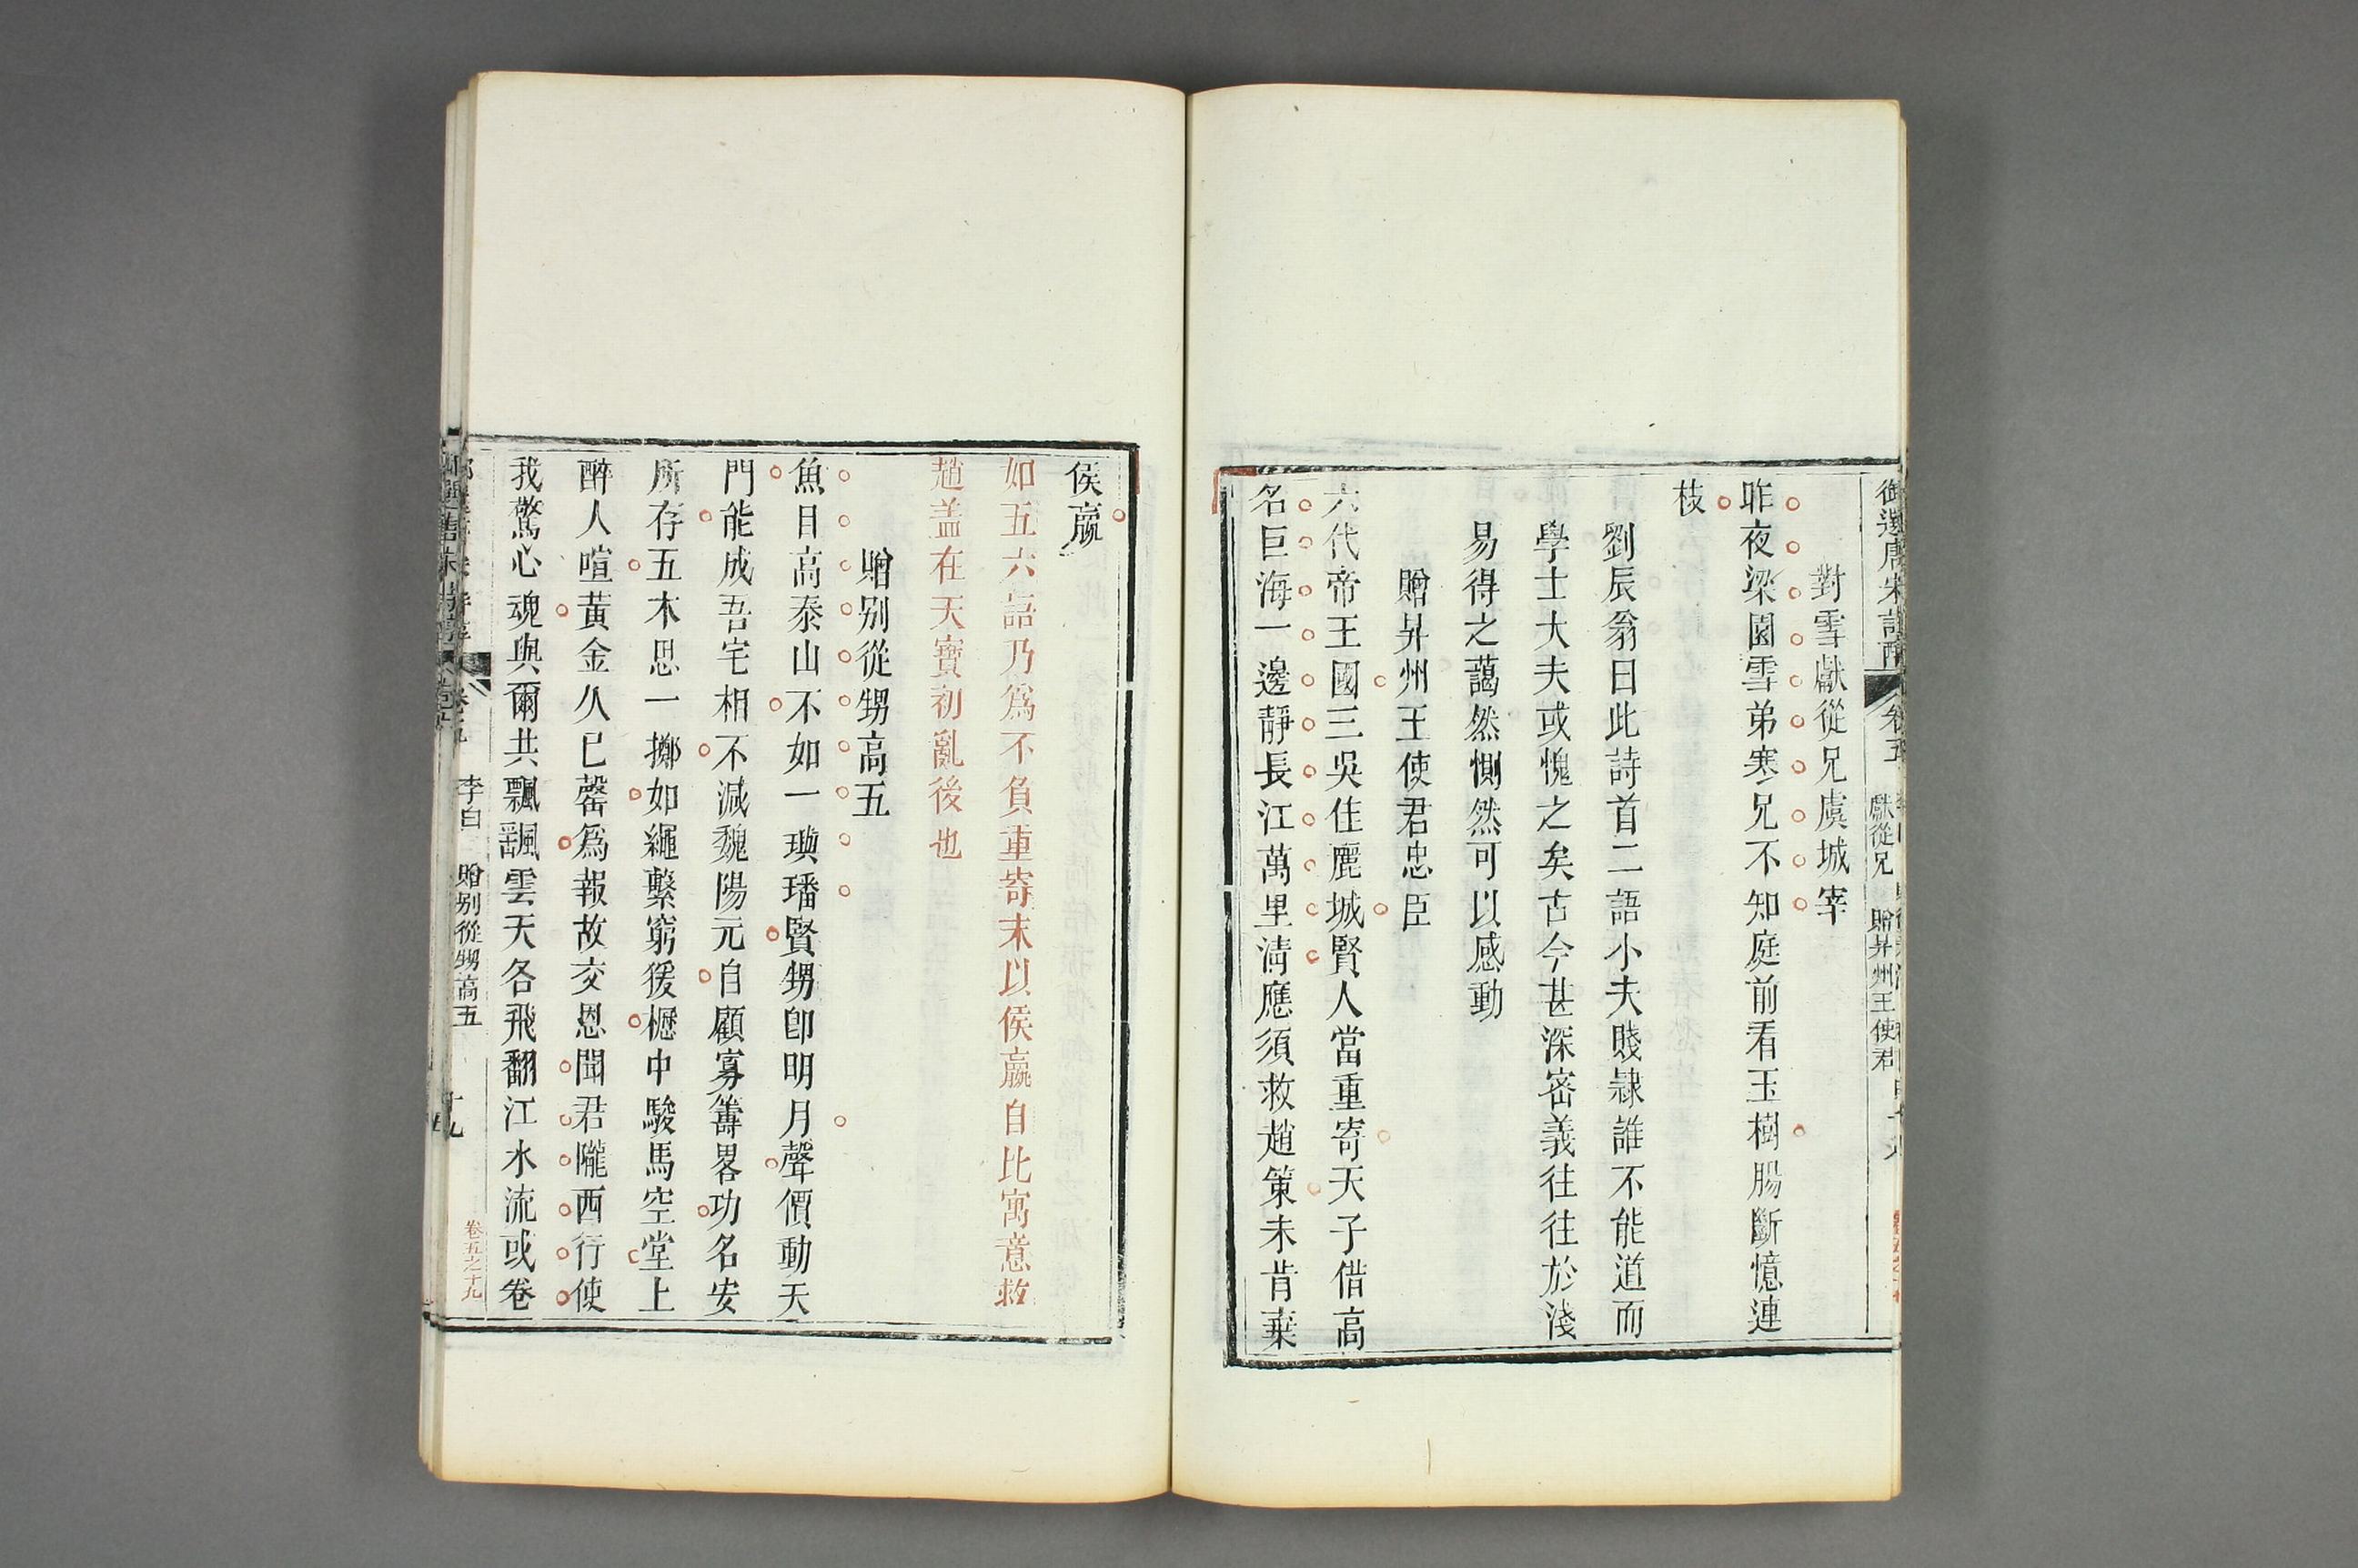 御選唐宋詩醇
卷五
獻從兄 贈昇州王使君
對雪獻從兄虞城宰
昨夜梁園雪弟寒兄不知庭前看玉樹腸斷憶連
枝
劉辰翁曰此詩首二語小夫賤隷誰不能道而
學士大夫或愧之矣古今甚深密義往往於淺
易得之藹然惻然可以感動
贈昇州王使君忠臣
六代帝王國三吳佳麗城賢人當重寄天子借高
名巨海一邊靜長江萬里淸應須救趙策未肯棄
侯嬴
如五六語乃爲不負重寄末以侯嬴自比寓意救
趙盖在天寶初亂後也
贈别從甥高五
魚目高泰山不如一璵璠賢甥卽明月聲價動天
門能成吾宅相不減魏陽元自顧寡籌畧功名安
所存五木思一擲如繩繫窮猨櫪中駿馬空堂上
醉人喧黃金久已罄爲報故交恩聞君隴西行使
我驚心魂與爾共飄颻雲天各飛翻江水流或卷
李白 贈别從甥高五
十九
卷五之十九